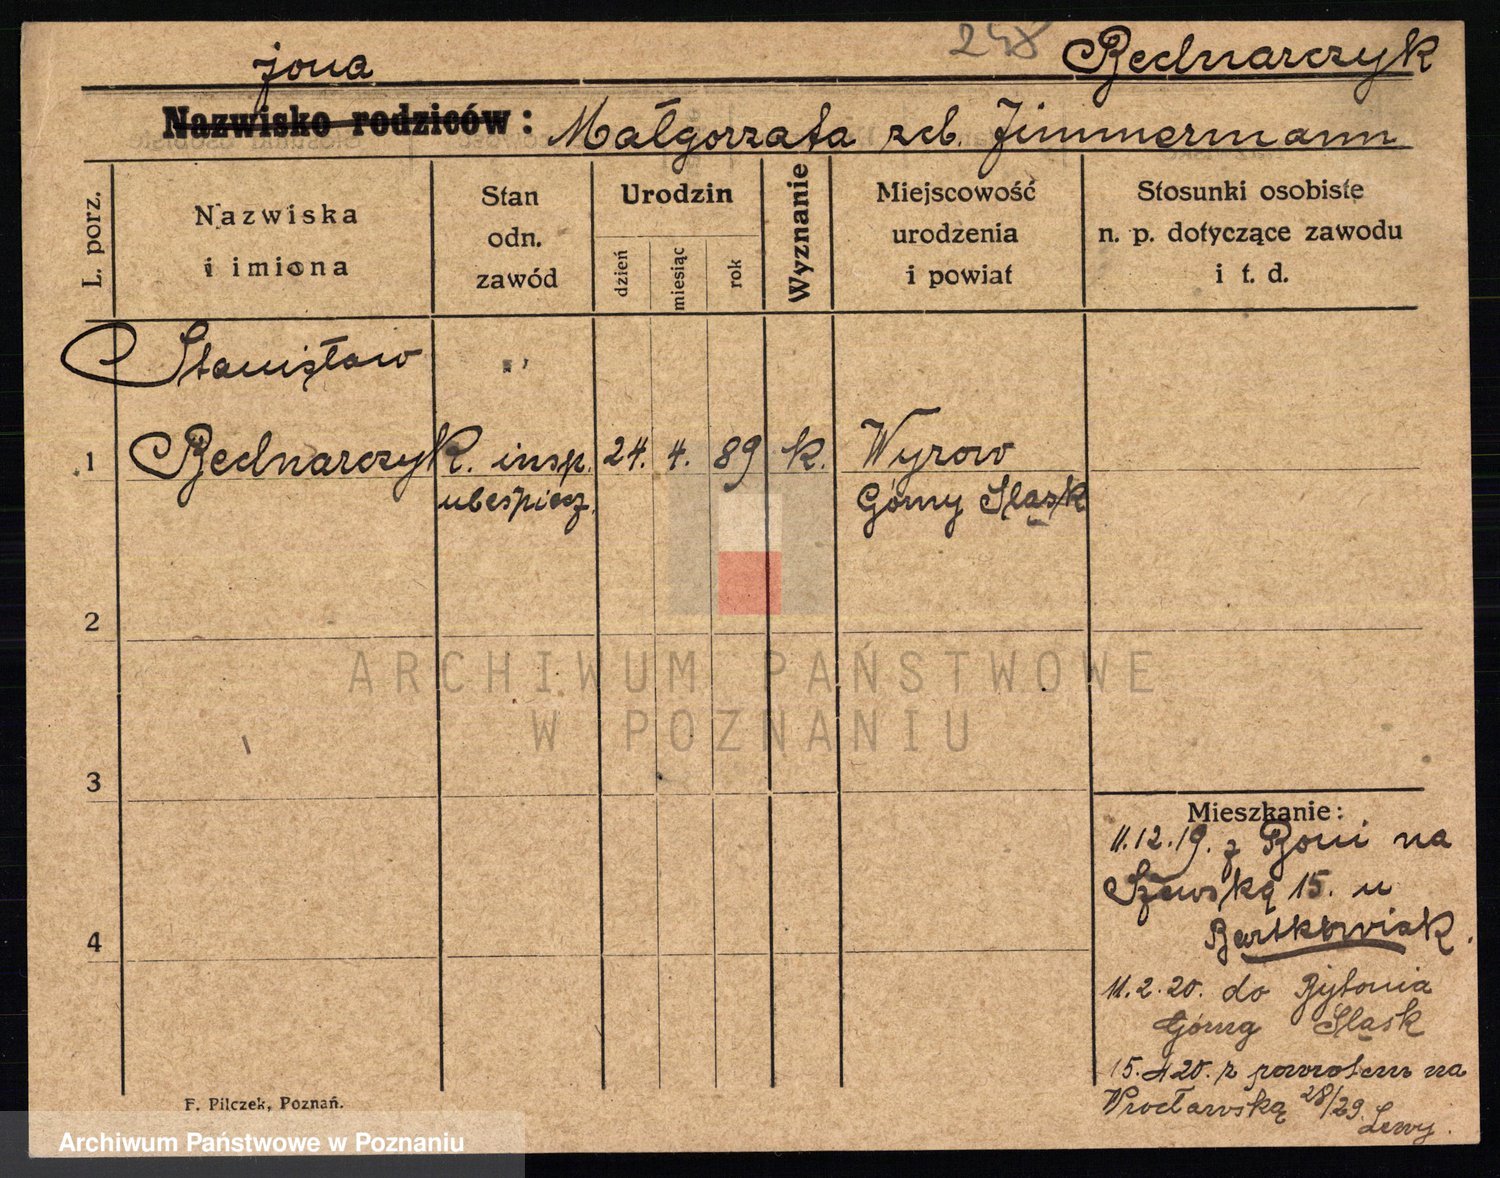 248 Bednarczyk
żona
Nazwisko rodziców: Małgorzata zeb. Zimmermann
L. porz.
Nazwiska
i imiona
Stan
odn.
zawód
Urodzin
dzień
miesiąc
rok
Wyznanie
Miejscowość
urodzenia
i powiat
Stosunki osobiste
n. p. dotyczące zawodu
i t. d.
Stanisław
1 Bednarczyk. insp. 24. 4. 89 k. Wyrow
ubespiecz. Górny Śląsk
2
ARCHIWUM PAŃSTWOWE
W POZNANIU
3
Mieszkanie:
11.12.19. z Boni na
Szewską 15. u
Bartkowiak.
4
11.2.20. do Bytomia
Górng Śląsk
15. 4 20. z powrotem na
Wrocławską 28/29.
Lewy.
F. Pilczek, Poznań.
Archiwum Państwowe w Poznaniu